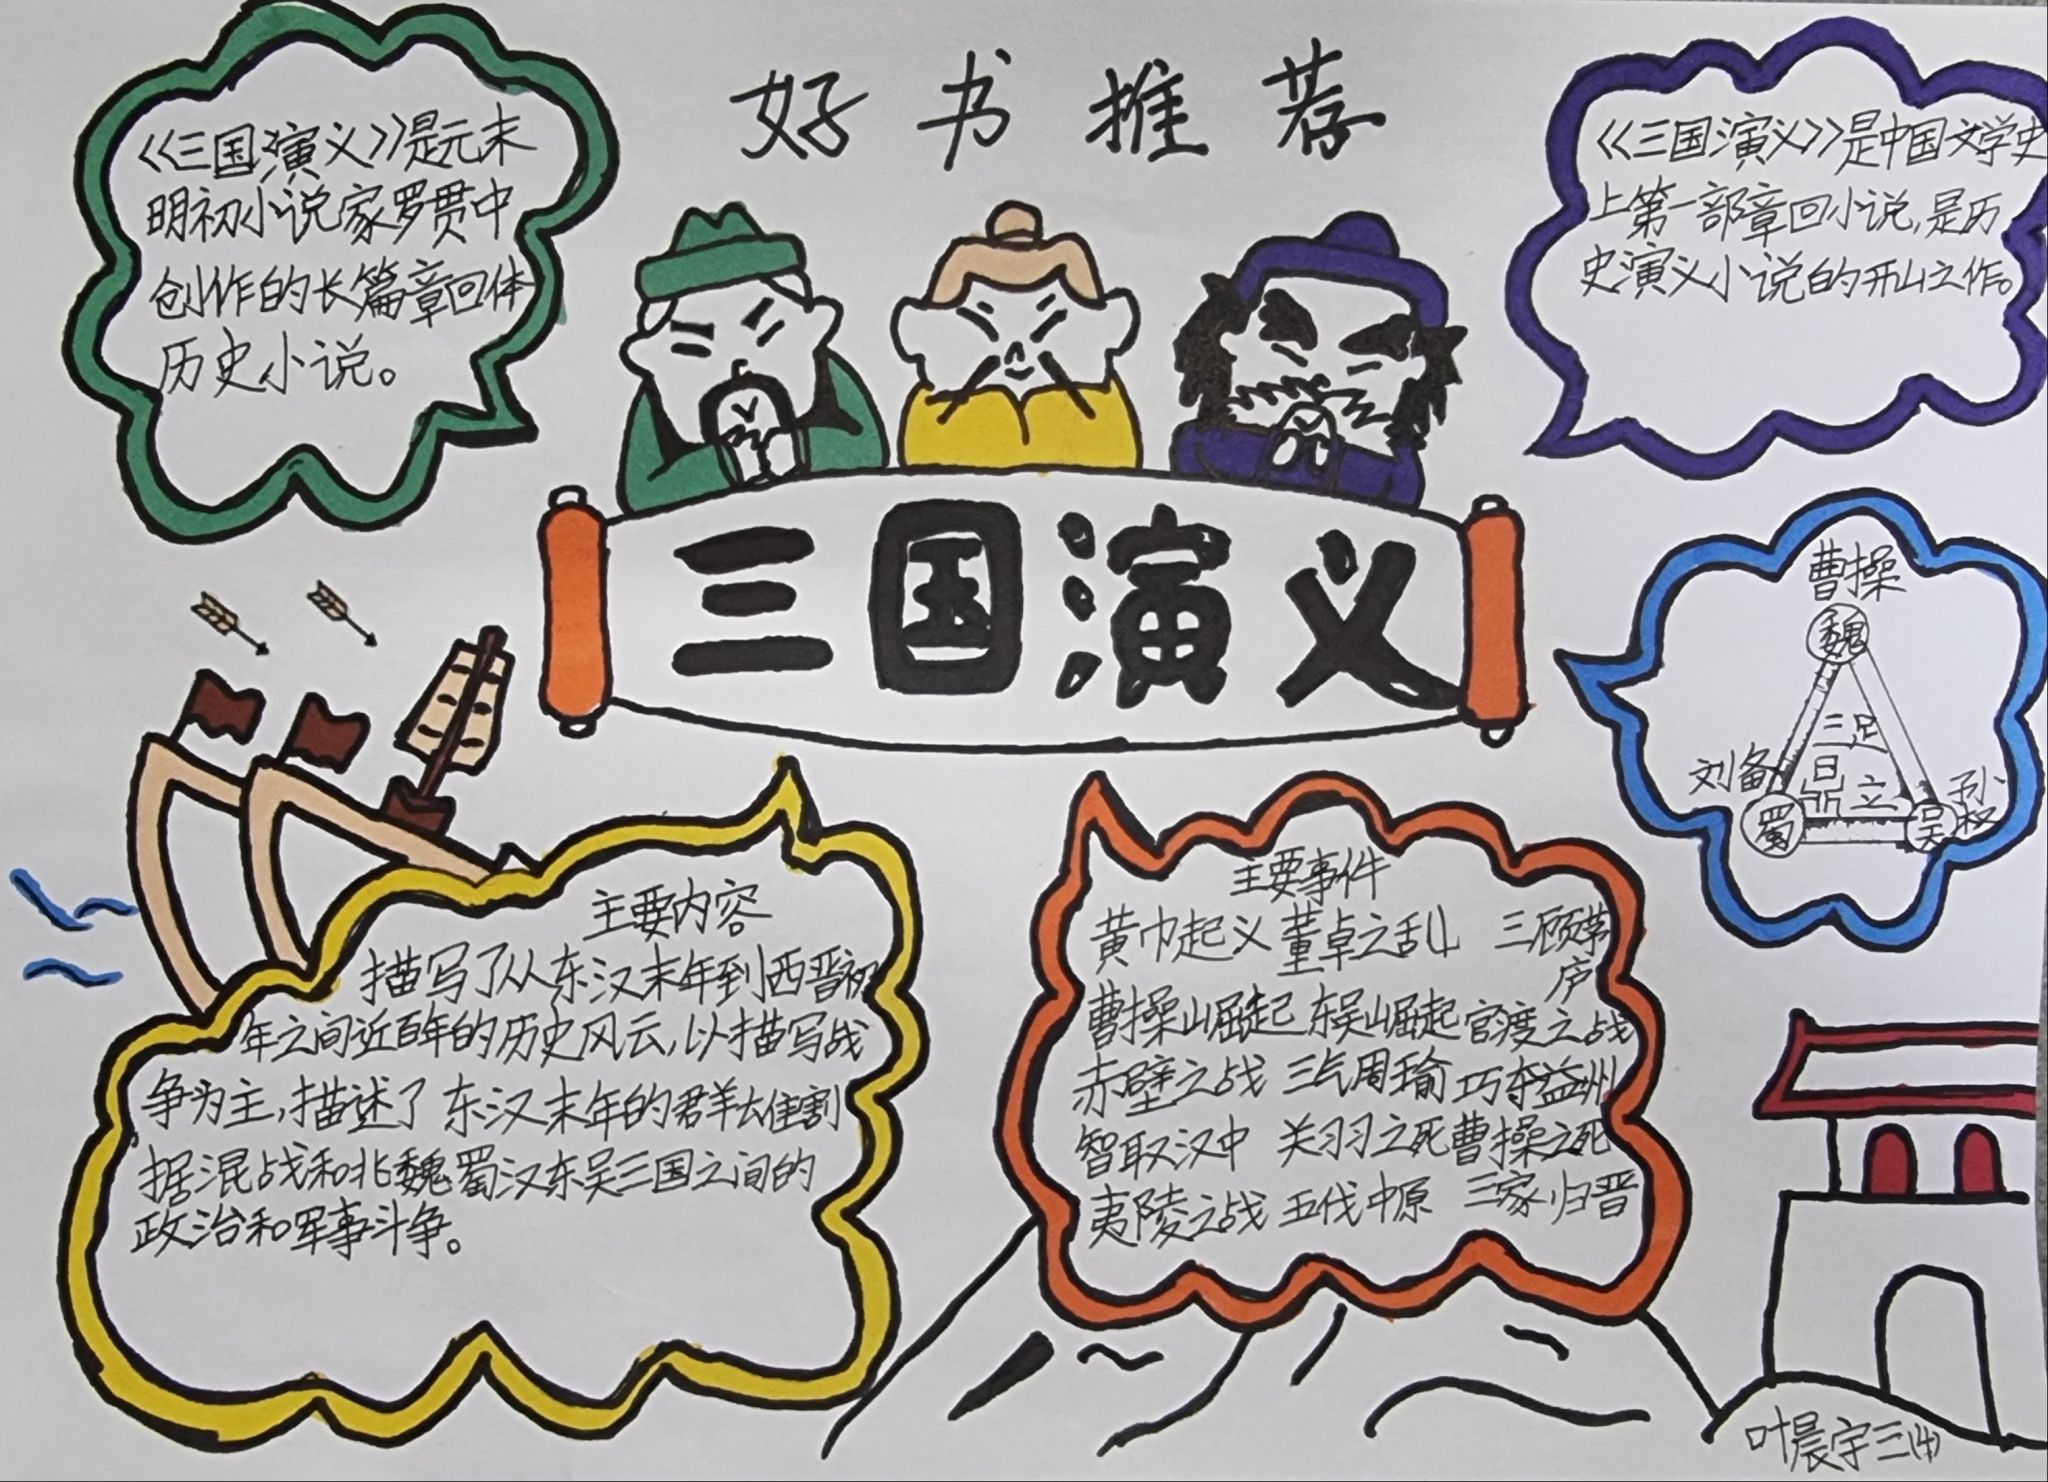 好书推荐
《三国演义》是元末
明初小说家罗贯中
创作的长篇章回体
历史小说。
《三国演义》是中国文学史
上第一部章回小说,是历
史演义小说的开山之作。
三国演义
曹操
魏
三足
鼎立
刘备
蜀
吴
孙权
主要内容
描写了从东汉末年到西晋初
年之间近百年的历史风云,以描写战
争为主,描述了东汉末年的群雄割
据混战和北魏蜀汉东吴三国之间的
政治和军事斗争。
主要事件
黄巾起义 董卓之乱 三顾茅庐
曹操崛起 东吴崛起 官渡之战
赤壁之战 三气周瑜 巧夺益州
智取汉中 关羽之死 曹操之死
夷陵之战 五伐中原 三家归晋
叶晨宇三(4)